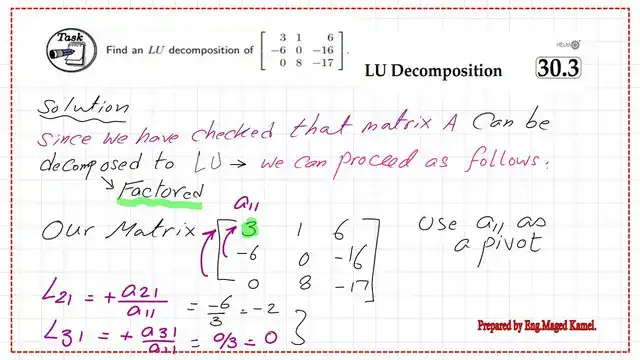 Task
Find an LU decomposition of [ 3 1 6
-6 0 -16
0 8 -17 ].
HELM
LU Decomposition
30.3
Solution
Since we have checked that matrix A Can be
decomposed to LU → we can proceed as follows.
Factored
a11
Our Matrix [ 3 1 6
-6 0 -16
0 8 -17 ]
Use a11 as
a pivot
L21 = + a21/a11 = -6/3 = -2
L31 = + a31/a11 = 0/3 = 0
Prepared by Eng.Maged Kamel.